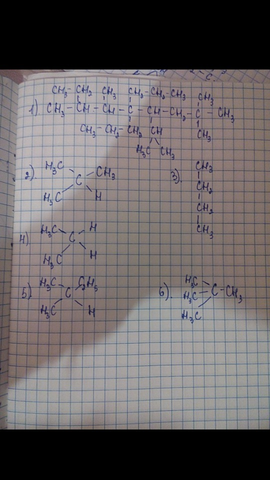 CH₃ CH₃ CH₃ CH₂-CH₂-CH₃ CH₃
1) CH₂ - CH - CH - C - CH - CH₂ - C - CH₃
CH₃ - CH₂ - CH₂ CH CH₃
H₃C CH₃
2) H₃C CH₃ 3) CH₃
C CH₂
H₃C H CH₂
CH₃
4) H₃C H
C
H₃C H
5) H₃C CH₃ 6) H₃C
C H₃C C - CH₃
H₃C H H₃C